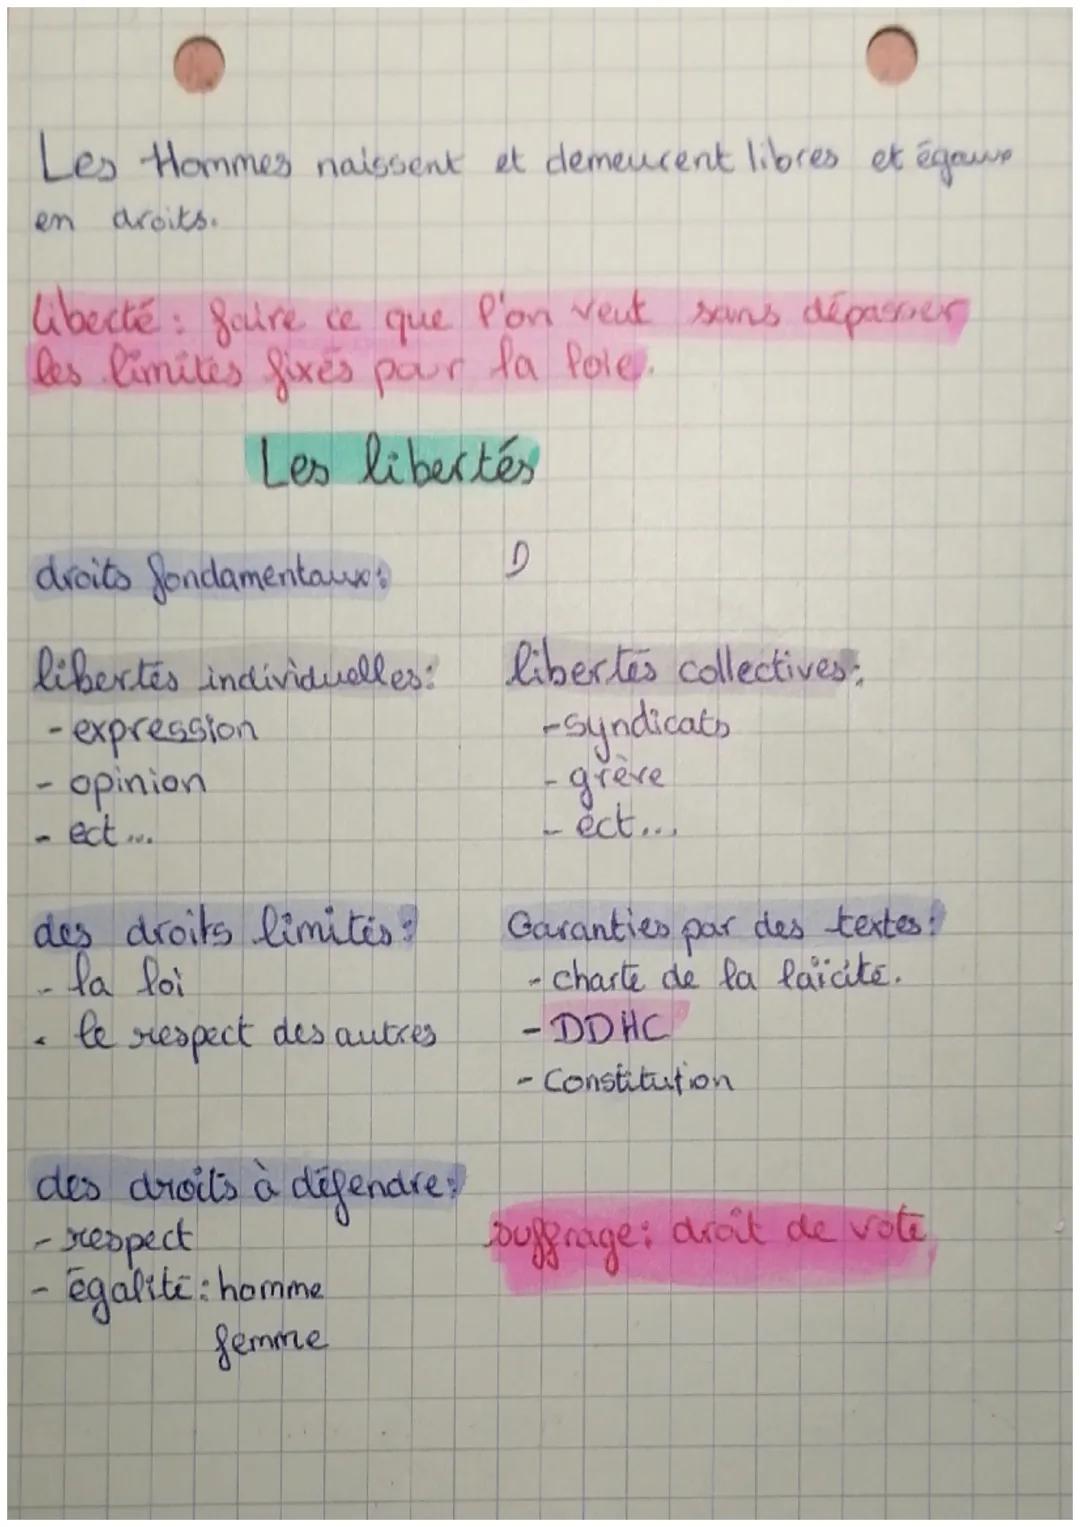 Les Hommes naissent et demeurent libres et égaux
en droits.
liberté : faire ce que l'on veut sans dépasser
les limites fixés par la loie.
Les libertés
droits fondamentaux :
D
libertés individuelles :
- expression
- opinion
- ect...
libertés collectives :
- syndicats
- grève
- ect...
des droits limités :
- la loi
- le respect des autres
Garanties par des textes :
- charte de la laïcité.
- DDHC
- Constitution
des droits à défendre :
- respect
- égalité : homme
femme
suffrage : droit de vote